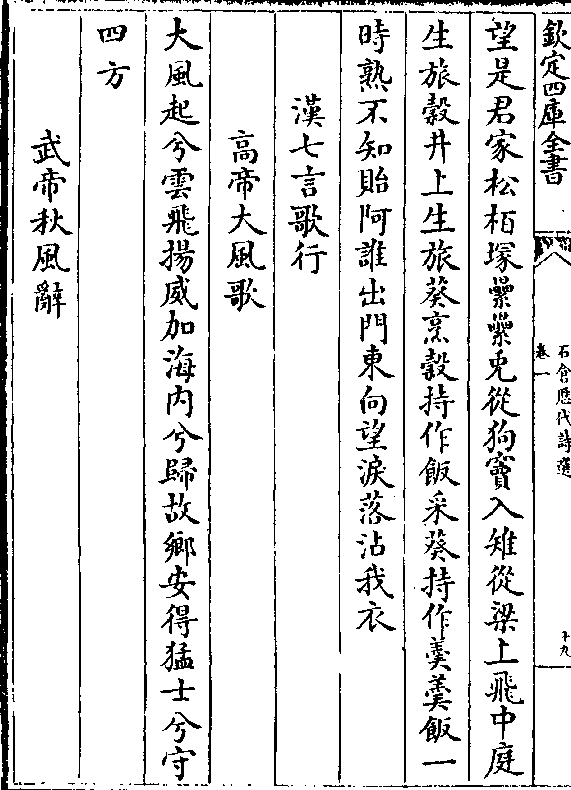 欽定四庫全書
石倉歷代詩選
卷一
十九
望是君家松栢塚纍纍兎從狗竇入雉從梁上飛中庭
生旅穀井上生旅葵烹穀持作飯采葵持作羹羹飯一
時熟不知貽阿誰出門東向望淚落沾我衣
漢七言歌行
高帝大風歌
大風起兮雲飛揚威加海内兮歸故鄉安得猛士兮守
四方
武帝秋風辭